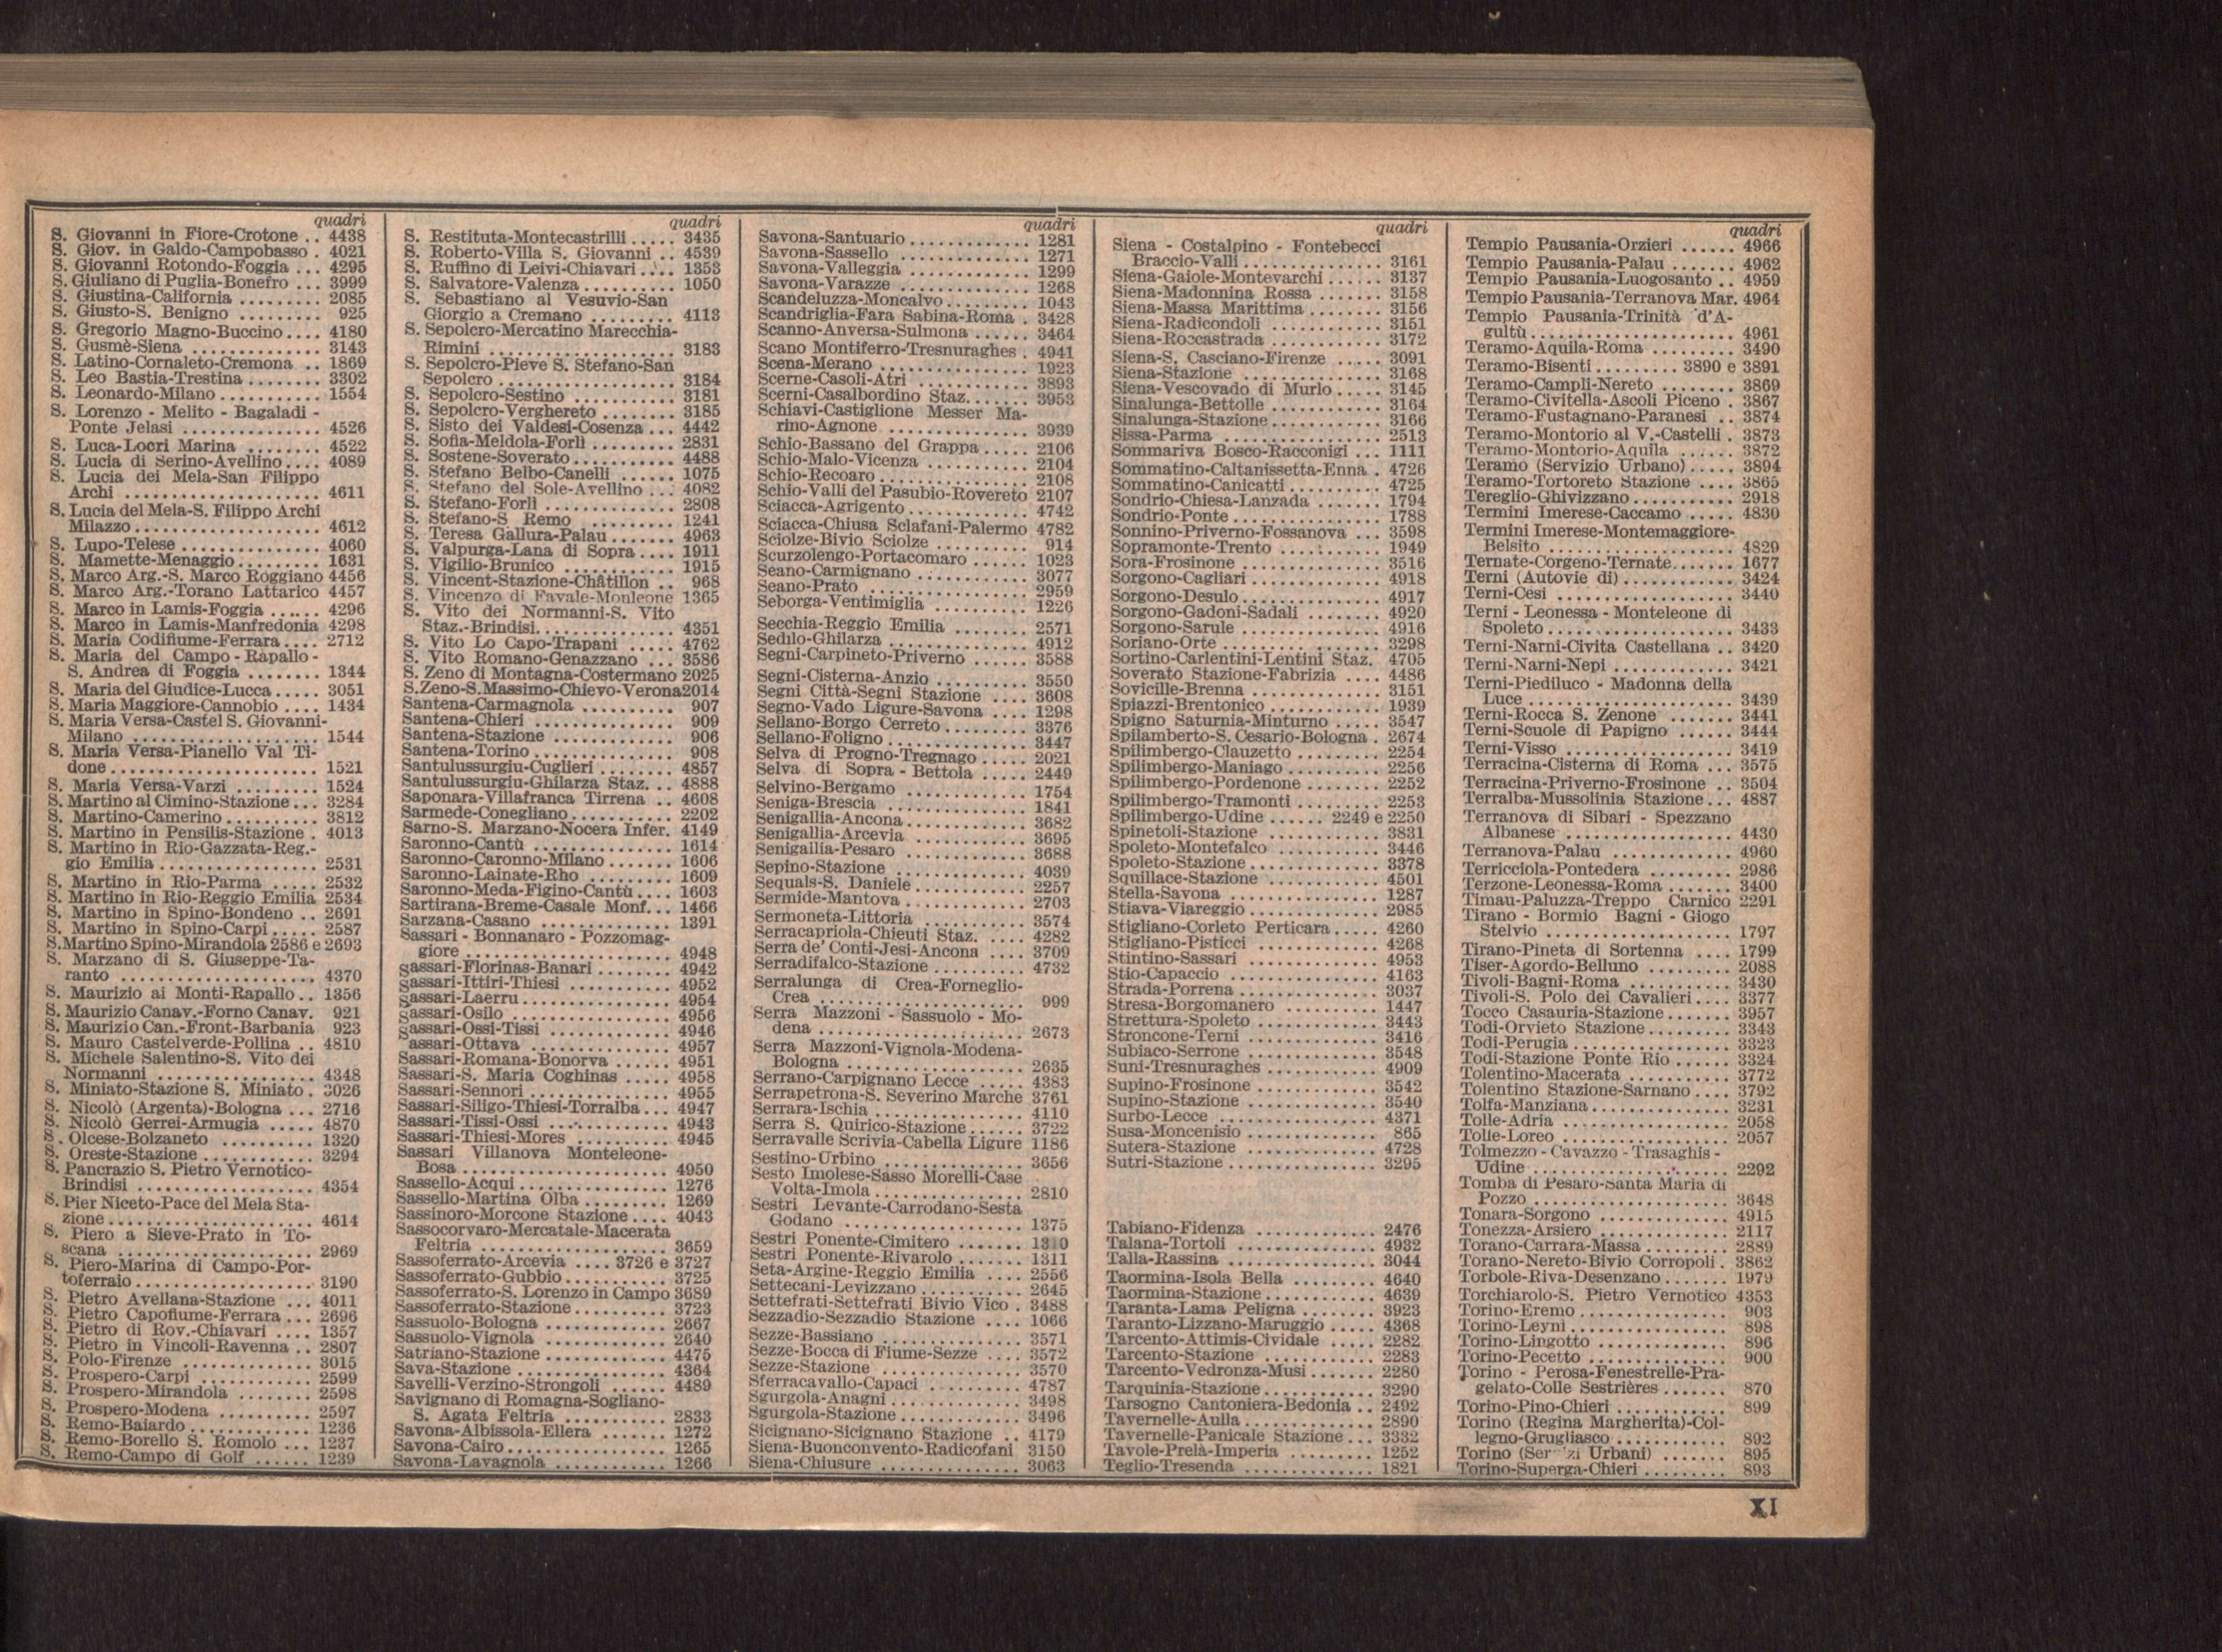 quadri
S. Giovanni in Fiore-Crotone .. 4438
S. Giov. in Galdo-Campobasso . 4021
S. Giovanni Rotondo-Foggia ... 4295
S. Giuliano di Puglia-Bonefro ... 3999
S. Giustina-California ......... 2085
S. Giusto-S. Benigno ......... 925
S. Gregorio Magno-Buccino .... 4180
S. Gusmè-Siena ............. 3143
S. Latino-Cornaleto-Cremona .. 1869
S. Leo Bastia-Trestina ........ 3302
S. Leonardo-Milano ........... 1554
S. Lorenzo - Melito - Bagaladi -
Ponte Jelasi ............... 4526
S. Luca-Locri Marina ........ 4522
S. Lucia di Serino-Avellino.... 4089
S. Lucia dei Mela-San Filippo
Archi ..................... 4611
S. Lucia del Mela-S. Filippo Archi
Milazzo .................... 4612
S. Lupo-Telese ............... 4060
S. Mamette-Menaggio ......... 1631
S. Marco Arg.-S. Marco Roggiano 4456
S. Marco Arg.-Torano Lattarico 4457
S. Marco in Lamis-Foggia ...... 4296
S. Marco in Lamis-Manfredonia 4298
S. Maria Codifiume-Ferrara.... 2712
S. Maria del Campo - Rapallo -
S. Andrea di Foggia ........ 1344
S. Maria del Giudice-Lucca ..... 3051
S. Maria Maggiore-Cannobio .... 1434
S. Maria Versa-Castel S. Giovanni-
Milano .................... 1544
S. Maria Versa-Pianello Val Ti-
done ...................... 1521
S. Maria Versa-Varzi ......... 1524
S. Martino al Cimino-Stazione ... 3284
S. Martino-Camerino .......... 3812
S. Martino in Pensilis-Stazione . 4013
S. Martino in Rio-Gazzata-Reg.-
gio Emilia ................. 2531
S. Martino in Rio-Parma ..... 2532
S. Martino in Rio-Reggio Emilia 2534
S. Martino in Spino-Bondeno .. 2691
S. Martino in Spino-Carpi ..... 2587
S. Martino Spino-Mirandola 2586 e 2693
S. Marzano di S. Giuseppe-Ta-
ranto ..................... 4370
S. Maurizio ai Monti-Rapallo .. 1356
S. Maurizio Canav.-Forno Canav. 921
S. Maurizio Can.-Front-Barbania 923
S. Mauro Castelverde-Pollina .. 4810
S. Michele Salentino-S. Vito dei
Normanni .................. 4348
S. Miniato-Stazione S. Miniato . 3026
S. Nicolò (Argenta)-Bologna ... 2716
S. Nicolò Gerrei-Armugia ..... 4870
S. Olcese-Bolzaneto .......... 1320
S. Oreste-Stazione ............ 3294
S. Pancrazio S. Pietro Vernotico-
Brindisi ................... 4354
S. Pier Niceto-Pace del Mela Sta-
zione ...................... 4614
S. Piero a Sieve-Prato in To-
scana ..................... 2969
S. Piero-Marina di Campo-Por-
toferraio ................... 3190
S. Pietro Avellana-Stazione ... 4011
S. Pietro Capofiume-Ferrara ... 2696
S. Pietro di Rov.-Chiavari .... 1357
S. Pietro in Vincoli-Ravenna .. 2807
S. Polo-Firenze .............. 3015
S. Prospero-Carpi ............ 2599
S. Prospero-Mirandola ........ 2598
S. Prospero-Modena .......... 2597
S. Remo-Baiardo ............. 1236
S. Remo-Borello S. Romolo ... 1237
S. Remo-Campo di Golf ...... 1239
quadri
S. Restituta-Montecastrilli ..... 3435
S. Roberto-Villa S. Giovanni .. 4539
S. Ruffino di Leivi-Chiavari .... 1353
S. Salvatore-Valenza .......... 1050
S. Sebastiano al Vesuvio-San
Giorgio a Cremano ......... 4113
S. Sepolcro-Mercatino Marecchia-
Rimini .................... 3183
S. Sepolcro-Pieve S. Stefano-San
Sepolcro ................... 3184
S. Sepolcro-Sestino ........... 3181
S. Sepolcro-Verghereto ........ 3185
S. Sisto dei Valdesi-Cosenza ... 4442
S. Sofia-Meldola-Forlì ......... 2831
S. Sostene-Soverato ........... 4488
S. Stefano Belbo-Canelli ...... 1075
S. Stefano del Sole-Avellino ... 4082
S. Stefano-Forlì .............. 2808
S. Stefano-S Remo ......... 1241
S. Teresa Gallura-Palau ....... 4963
S. Valpurga-Lana di Sopra .... 1911
S. Vigilio-Brunico ............ 1915
S. Vincent-Stazione-Châtillon .. 968
S. Vincenzo di Favale-Monleone 1365
S. Vito dei Normanni-S. Vito
Staz.-Brindisi ............... 4351
S. Vito Lo Capo-Trapani ..... 4762
S. Vito Romano-Genazzano ... 3586
S. Zeno di Montagna-Costermano 2025
S. Zeno-S. Massimo-Chievo-Verona 2014
Santena-Carmagnola .......... 907
Santena-Chieri ............... 909
Santena-Stazione ............. 906
Santena-Torino ............... 908
Santulussurgiu-Cuglieri ........ 4857
Santulussurgiu-Ghilarza Staz. ... 4888
Saponara-Villafranca Tirrena .. 4608
Sarmede-Conegliano ........... 2202
Sarno-S. Marzano-Nocera Infer. 4149
Saronno-Cantù ............... 1614
Saronno-Caronno-Milano ....... 1606
Saronno-Lainate-Rho ......... 1609
Saronno-Meda-Figino-Cantù .... 1603
Sartirana-Breme-Casale Monf... 1466
Sarzana-Casano .............. 1391
Sassari - Bonnanaro - Pozzomag-
giore ...................... 4948
Sassari-Florinas-Banari ........ 4942
Sassari-Ittiri-Thiesi ........... 4952
Sassari-Laerru ................ 4954
Sassari-Osilo ................. 4956
Sassari-Ossi-Tissi ............. 4946
assari-Ottava ................ 4957
Sassari-Romana-Bonorva ...... 4951
Sassari-S. Maria Coghinas ..... 4958
Sassari-Sennori ............... 4955
Sassari-Siligo-Thiesi-Torralba ... 4947
Sassari-Tissi-Ossi ............. 4943
Sassari-Thiesi-Mores .......... 4945
Sassari Villanova Monteleone-
Bosa ...................... 4950
Sassello-Acqui ................ 1276
Sassello-Martina Olba ......... 1269
Sassinoro-Morcone Stazione .... 4043
Sassocorvaro-Mercatale-Macerata
Feltria .................... 3659
Sassoferrato-Arcevia .... 3726 e 3727
Sassoferrato-Gubbio ........... 3725
Sassoferrato-S. Lorenzo in Campo 3689
Sassoferrato-Stazione .......... 3723
Sassuolo-Bologna ............. 2667
Sassuolo-Vignola ............. 2640
Satriano-Stazione ............. 4475
Sava-Stazione ................ 4364
Savelli-Verzino-Strongoli ...... 4489
Savignano di Romagna-Sogliano-
S. Agata Feltria ........... 2833
Savona-Albissola-Ellera ....... 1272
Savona-Cairo ................. 1265
Savona-Lavagnola ............ 1266
quadri
Savona-Santuario ............. 1281
Savona-Sassello .............. 1271
Savona-Valleggia ............. 1299
Savona-Varazze .............. 1268
Scandeluzza-Moncalvo ......... 1043
Scandriglia-Fara Sabina-Roma . 3428
Scanno-Anversa-Sulmona ...... 3464
Scano Montiferro-Tresnuraghes . 4941
Scena-Merano ................ 1923
Scerne-Casoli-Atri ............ 3893
Scerni-Casalbordino Staz. ...... 3953
Schiavi-Castiglione Messer Ma-
rino-Agnone ................ 3939
Schio-Bassano del Grappa ..... 2106
Schio-Malo-Vicenza ........... 2104
Schio-Recoaro ................ 2108
Schio-Valli del Pasubio-Rovereto 2107
Sciacca-Agrigento ............. 4742
Sciacca-Chiusa Sclafani-Palermo 4782
Sciolze-Bivio Sciolze .......... 914
Scurzolengo-Portacomaro ...... 1023
Seano-Carmignano ............ 3077
Seano-Prato ................. 2959
Seborga-Ventimiglia ........... 1226
Secchia-Reggio Emilia ........ 2571
Sedilo-Ghilarza ............... 4912
Segni-Carpineto-Priverno ...... 3588
Segni-Cisterna-Anzio .......... 3550
Segni Città-Segni Stazione .... 3608
Segno-Vado Ligure-Savona .... 1298
Sellano-Borgo Cerreto ......... 3376
Sellano-Foligno ............... 3447
Selva di Progno-Tregnago ..... 2021
Selva di Sopra - Bettola ..... 2449
Selvino-Bergamo ............. 1754
Seniga-Brescia ............... 1841
Senigallia-Ancona ............. 3682
Senigallia-Arcevia ............ 3695
Senigallia-Pesaro ............. 3688
Sepino-Stazione .............. 4039
Sequals-S. Daniele ............ 2257
Sermide-Mantova ............. 2703
Sermoneta-Littoria ............ 3574
Serracapriola-Chieuti Staz. .... 4282
Serra de' Conti-Jesi-Ancona .... 3709
Serradifalco-Stazione .......... 4732
Serralunga di Crea-Forneglio-
Crea ....................... 999
Serra Mazzoni - Sassuolo - Mo-
dena ...................... 2673
Serra Mazzoni-Vignola-Modena-
Bologna ................... 2635
Serrano-Carpignano Lecce ..... 4383
Serrapetrona-S. Severino Marche 3761
Serrara-Ischia ................ 4110
Serra S. Quirico-Stazione ...... 3722
Serravalle Scrivia-Cabella Ligure 1186
Sestino-Urbino ............... 3656
Sesto Imolese-Sasso Morelli-Case
Volta-Imola ................ 2810
Sestri Levante-Carrodano-Sesta
Godano ................... 1375
Sestri Ponente-Cimitero ....... 1310
Sestri Ponente-Rivarolo ....... 1311
Seta-Argine-Reggio Emilia .... 2556
Settecani-Levizzano ........... 2645
Settefrati-Settefrati Bivio Vico . 3488
Sezzadio-Sezzadio Stazione .... 1066
Sezze-Bassiano ............... 3571
Sezze-Bocca di Fiume-Sezze .... 3572
Sezze-Stazione ............... 3570
Sferracavallo-Capaci .......... 4787
Sgurgola-Anagni .............. 3498
Sgurgola-Stazione ............. 3496
Sicignano-Sicignano Stazione .. 4179
Siena-Buonconvento-Radicofani 3150
Siena-Chiusure ............... 3063
quadri
Siena - Costalpino - Fontebecci
Braccio-Valli ............... 3161
Siena-Gaiole-Montevarchi ...... 3137
Siena-Madonnina Rossa ....... 3158
Siena-Massa Marittima ........ 3156
Siena-Radicondoli ............ 3151
Siena-Roccastrada ............ 3172
Siena-S. Casciano-Firenze ..... 3091
Siena-Stazione ............... 3168
Siena-Vescovado di Murlo ..... 3145
Sinalunga-Bettolle ............ 3164
Sinalunga-Stazione ............ 3166
Sissa-Parma ................. 2513
Sommariva Bosco-Racconigi ... 1111
Sommatino-Caltanissetta-Enna . 4726
Sommatino-Canicatti .......... 4725
Sondrio-Chiesa-Lanzada ....... 1794
Sondrio-Ponte ................ 1788
Sonnino-Priverno-Fossanova ... 3598
Sopramonte-Trento ........... 1949
Sora-Frosinone ............... 3516
Sorgono-Cagliari .............. 4918
Sorgono-Desulo ............... 4917
Sorgono-Gadoni-Sadali ........ 4920
Sorgono-Sarule ............... 4916
Soriano-Orte ................. 3298
Sortino-Carlentini-Lentini Staz. 4705
Soverato Stazione-Fabrizia .... 4486
Sovicille-Brenna .............. 3151
Spiazzi-Brentonico ............ 1939
Spigno Saturnia-Minturno ..... 3547
Spilamberto-S. Cesario-Bologna . 2674
Spilimbergo-Clauzetto ......... 2254
Spilimbergo-Maniago .......... 2256
Spilimbergo-Pordenone ........ 2252
Spilimbergo-Tramonti ......... 2253
Spilimbergo-Udine ...... 2249 e 2250
Spinetoli-Stazione ............ 3831
Spoleto-Montefalco ........... 3446
Spoleto-Stazione .............. 3378
Squillace-Stazione ............ 4501
Stella-Savona ................ 1287
Stiava-Viareggio .............. 2985
Stigliano-Corleto Perticara ..... 4260
Stigliano-Pisticci ............. 4268
Stintino-Sassari .............. 4953
Stio-Capaccio ................ 4163
Strada-Porrena ............... 3037
Stresa-Borgomanero .......... 1447
Strettura-Spoleto ............. 3443
Stroncone-Terni .............. 3416
Subiaco-Serrone .............. 3548
Suni-Tresnuraghes ............ 4909
Supino-Frosinone ............. 3542
Supino-Stazione .............. 3540
Surbo-Lecce ................. 4371
Susa-Moncenisio .............. 865
Sutera-Stazione .............. 4728
Sutri-Stazione ................ 3295
Tabiano-Fidenza .............. 2476
Talana-Tortoli ............... 4932
Talla-Rassina ................ 3044
Taormina-Isola Bella ......... 4640
Taormina-Stazione ............ 4639
Taranta-Lama Peligna ........ 3923
Taranto-Lizzano-Maruggio ..... 4368
Tarcento-Attimis-Cividale ..... 2282
Tarcento-Stazione ............ 2283
Tarcento-Vedronza-Musi ....... 2280
Tarquinia-Stazione ............ 3290
Tarsogno Cantoniera-Bedonia .. 2492
Tavernelle-Aulla .............. 2890
Tavernelle-Panicale Stazione ... 3332
Tavole-Prelà-Imperia .......... 1252
Teglio-Tresenda .............. 1821
quadri
Tempio Pausania-Orzieri ...... 4966
Tempio Pausania-Palau ....... 4962
Tempio Pausania-Luogosanto .. 4959
Tempio Pausania-Terranova Mar. 4964
Tempio Pausania-Trinità d'A-
gultù ...................... 4961
Teramo-Aquila-Roma ......... 3490
Teramo-Bisenti ......... 3890 e 3891
Teramo-Campli-Nereto ........ 3869
Teramo-Civitella-Ascoli Piceno . 3867
Teramo-Fustagnano-Paranesi .. 3874
Teramo-Montorio al V.-Castelli . 3873
Teramo-Montorio-Aquila ...... 3872
Teramo (Servizio Urbano) ..... 3894
Teramo-Tortoreto Stazione .... 3865
Tereglio-Ghivizzano ........... 2918
Termini Imerese-Caccamo ..... 4830
Termini Imerese-Montemaggiore-
Belsito .................... 4829
Ternate-Corgeno-Ternate ....... 1677
Terni (Autovie di) ............ 3424
Terni-Cesi ................... 3440
Terni - Leonessa - Monteleone di
Spoleto .................... 3433
Terni-Narni-Civita Castellana .. 3420
Terni-Narni-Nepi ............. 3421
Terni-Piediluco - Madonna della
Luce ...................... 3439
Terni-Rocca S. Zenone ....... 3441
Terni-Scuole di Papigno ...... 3444
Terni-Visso .................. 3419
Terracina-Cisterna di Roma ... 3575
Terracina-Priverno-Frosinone .. 3504
Terralba-Mussolinia Stazione ... 4887
Terranova di Sibari - Spezzano
Albanese ................... 4430
Terranova-Palau ............. 4960
Terricciola-Pontedera ......... 2986
Terzone-Leonessa-Roma ....... 3400
Timau-Paluzza-Treppo Carnico 2291
Tirano - Bormio Bagni - Giogo
Stelvio .................... 1797
Tirano-Pineta di Sortenna .... 1799
Tiser-Agordo-Belluno ......... 2088
Tivoli-Bagni-Roma ............ 3430
Tivoli-S. Polo dei Cavalieri .... 3377
Tocco Casauria-Stazione ....... 3957
Todi-Orvieto Stazione ......... 3343
Todi-Perugia ................. 3323
Todi-Stazione Ponte Rio ...... 3324
Tolentino-Macerata ........... 3772
Tolentino Stazione-Sarnano .... 3792
Tolfa-Manziana ............... 3231
Tolle-Adria .................. 2058
Tolle-Loreo .................. 2057
Tolmezzo - Cavazzo - Trasaghis -
Udine ..................... 2292
Tomba di Pesaro-Santa Maria di
Pozzo ..................... 3648
Tonara-Sorgono .............. 4915
Tonezza-Arsiero .............. 2117
Torano-Carrara-Massa ......... 2889
Torano-Nereto-Bivio Corropoli . 3862
Torbole-Riva-Desenzano ....... 1979
Torchiarolo-S. Pietro Vernotico 4353
Torino-Eremo ................ 903
Torino-Leynì ................. 898
Torino-Lingotto .............. 896
Torino-Pecetto ............... 900
Torino - Perosa-Fenestrelle-Pra-
gelato-Colle Sestrières ....... 870
Torino-Pino-Chieri ............ 899
Torino (Regina Margherita)-Col-
legno-Grugliasco ............ 892
Torino (Ser zi Urbani) ....... 895
Torino-Superga-Chieri ......... 893
XI